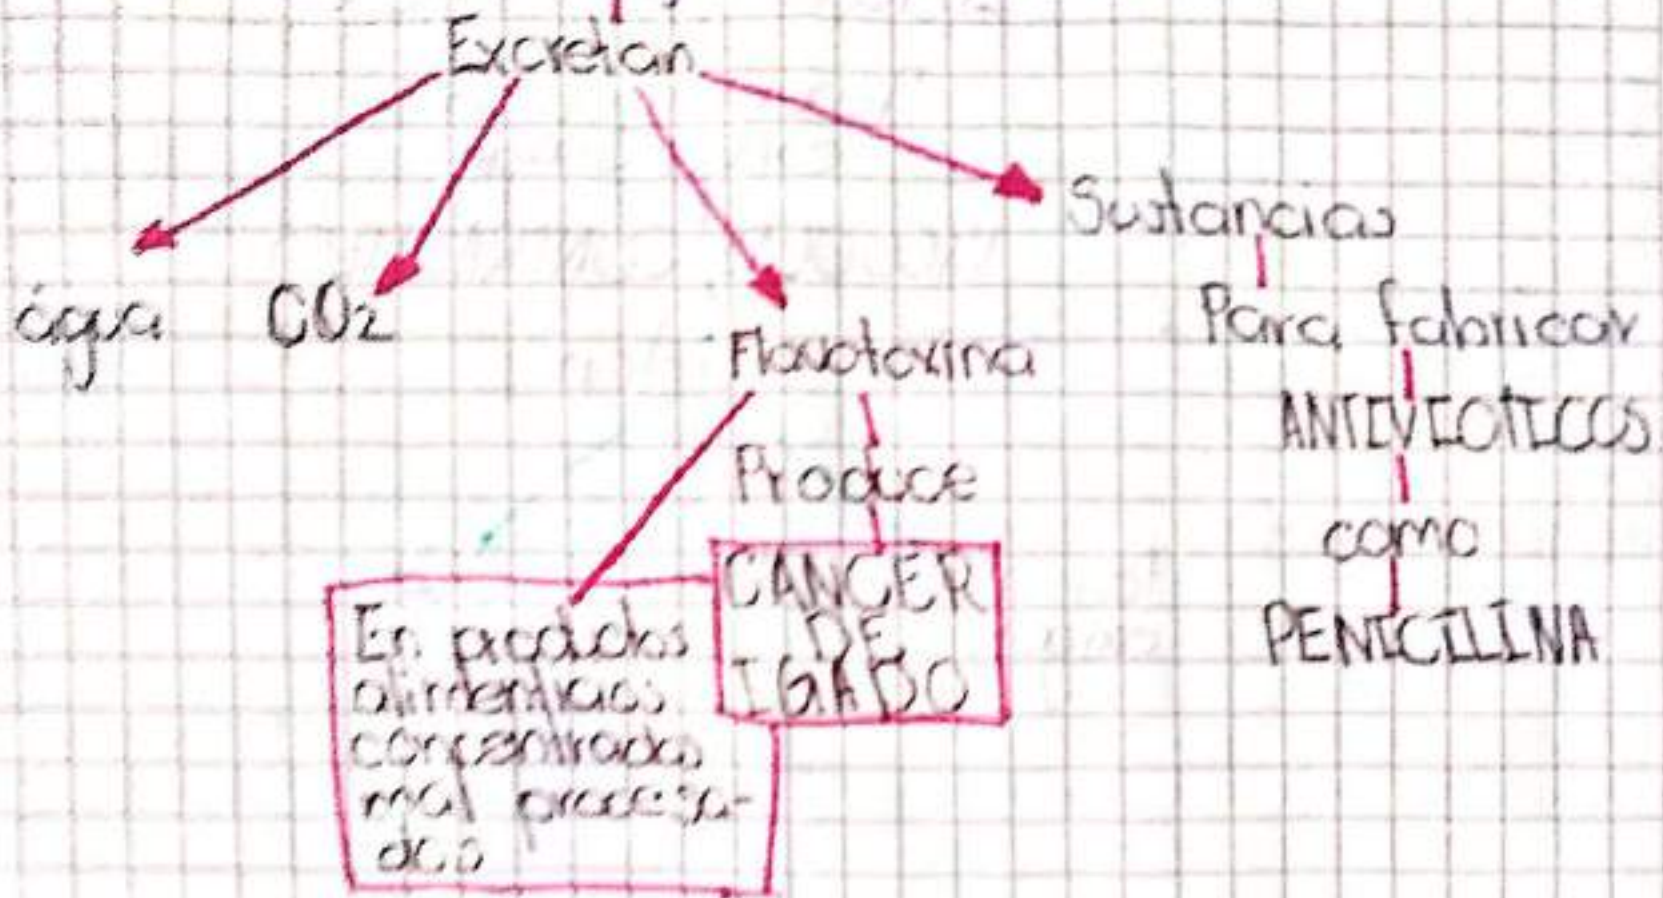 Excretan
água
CO2
Flavotoxina
Produce
CANCER
DE
IGADO
En productos
alimenticios
concentrados
mal procesa-
dos
Sustancias
Para fabricar
ANTIVIOTICOS
como
PENICILINA